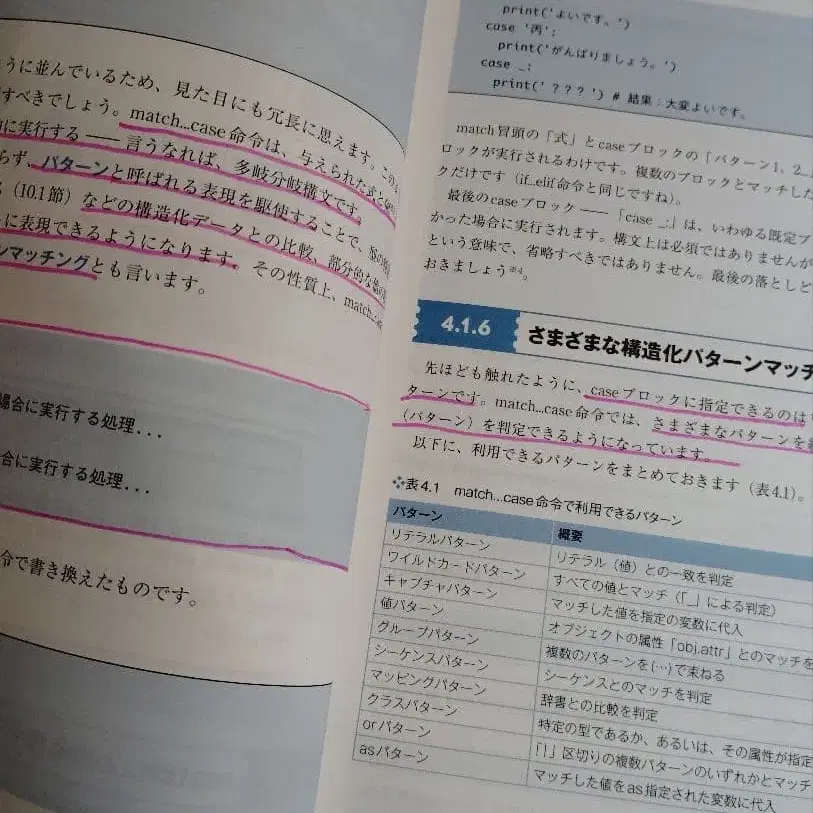 うに並んでいるため、見た目にも冗長に思えます。この
すべきでしょう。match...case命令は、与えられた式と
に実行する ―― 言うなれば、多岐分岐構文です。
らず、パターンと呼ばれる表現を駆使することで、
(10.1節)などの構造化データとの比較、部分的な
に表現できるようになります。その性質上、match...
ンマッチングとも言います。
場合に実行する処理...
合に実行する処理...
令で書き換えたものです。
print('よいです。')
case '丙':
print('がんばりましょう。')
case _:
print('???') # 結果：大変よいです。
match冒頭の「式」とcaseブロックの「パターン1、2...
ロックが実行されるわけです。複数のブロックとマッチした
クだけです（if...elif命令と同じですね）。
最後のcaseブロック ―― 「case _:」は、いわゆる既定ブ
かった場合に実行されます。構文上は必須ではありませんが
という意味で、省略すべきではありません。最後の落としど
おきましょう※4。
4.1.6 さまざまな構造化パターンマッチ
先ほども触れたように、caseブロックに指定できるのは
ターンです。match...case命令では、さまざまなパターンを
（パターン）を判定できるようになっています。
以下に、利用できるパターンをまとめておきます（表4.1）。
❖表4.1 match...case命令で利用できるパターン
パターン 概要
リテラルパターン リテラル（値）との一致を判定
ワイルドカードパターン すべての値とマッチ（「_」による判定）
キャプチャパターン マッチした値を指定の変数に代入
値パターン オブジェクトの属性「obj.attr」とのマッチを
グループパターン 複数のパターンを(…)で束ねる
シーケンスパターン シーケンスとのマッチを判定
マッピングパターン 辞書との比較を判定
クラスパターン 特定の型であるか、あるいは、その属性が指定
orパターン 「|」区切りの複数パターンのいずれかとマッチ
asパターン マッチした値をas指定された変数に代入